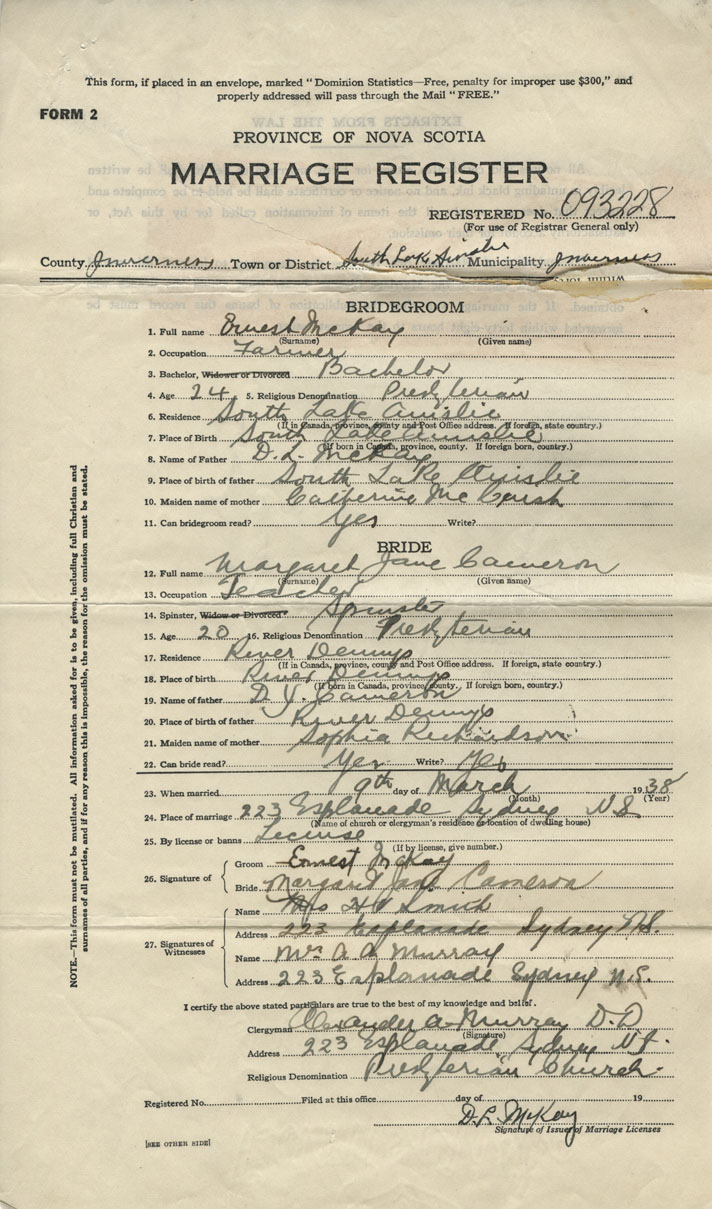 This form, if placed in an envelope, marked "Dominion Statistics—Free, penalty for improper use $300," and
properly addressed will pass through the Mail "FREE."
FORM 2
PROVINCE OF NOVA SCOTIA
MARRIAGE REGISTER
REGISTERED No. 093228
(For use of Registrar General only)
County Inverness Town or District South Lake Ainslie Municipality Inverness
BRIDEGROOM
1. Full name Ernest McKay
(Surname) (Given name)
2. Occupation Farmer
3. Bachelor, Widower or Divorced Bachelor
4. Age 24 5. Religious Denomination Presbyterian
6. Residence South Lake Ainslie
(If in Canada, province, county and Post Office address. If foreign, state country.)
7. Place of Birth South Lake Ainslie
(If born in Canada, province, county. If foreign born, country.)
8. Name of Father D. L. McKay
9. Place of birth of father South Lake Ainslie
10. Maiden name of mother Catherine
11. Can bridegroom read? Yes Write?
BRIDE
12. Full name Margaret Jane Cameron
(Surname) (Given name)
13. Occupation Teacher
14. Spinster, Widow or Divorced Spinster
15. Age 20 16. Religious Denomination Presbyterian
17. Residence River Dennys
(If in Canada, province, county and Post Office address. If foreign, state country.)
18. Place of birth River Dennys
(If born in Canada, province, county. If foreign born, country.)
19. Name of father D. Y. Cameron
20. Place of birth of father River Dennys
21. Maiden name of mother Sophia Richardson
22. Can bride read? Yes Write? Yes
23. When married 9th day of March 1938
(Month) (Year)
24. Place of marriage 223 Esplanade Sydney N.S.
(Name of church or clergyman's residence or location of dwelling house)
25. By license or banns License
(If by license, give number.)
26. Signature of
Groom Ernest McKay
Bride Margaret Jane Cameron
27. Signatures of Witnesses
Name Mrs Smith
Address 223 Esplanade Sydney N.S.
Name Mrs A A Murray
Address 223 Esplanade Sydney N.S.
I certify the above stated particulars are true to the best of my knowledge and belief.
Clergyman Alexander A. Murray D.D
(Signature)
Address 223 Esplanade, Sydney N.S.
Religious Denomination Presbyterian Church
Registered No. Filed at this office day of 19
D. L. McKay
Signature of Issuer of Marriage Licenses
[SEE OTHER SIDE]
NOTE.—This form must not be mutilated. All information asked for is to be given, including full Christian and
surnames of all parties, and if for any reason this is impossible, the reason for the omission must be stated.